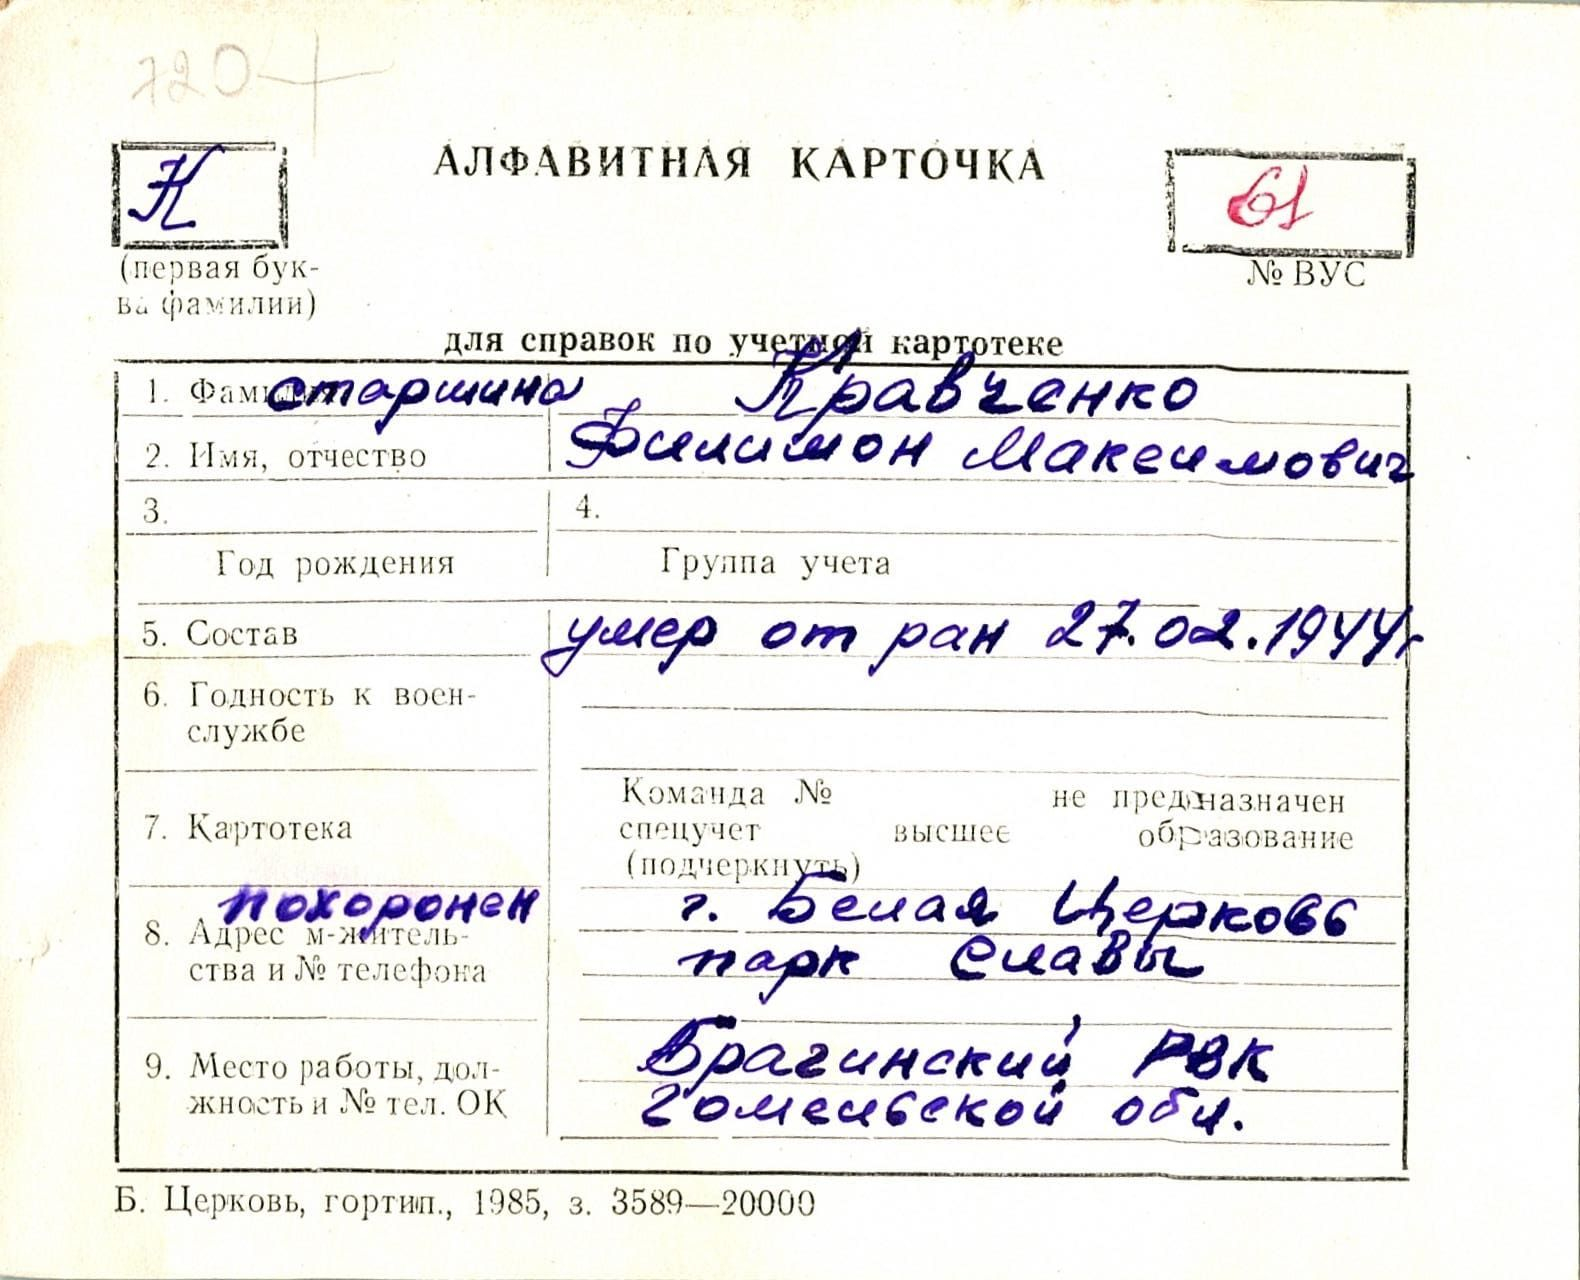 720
К
АЛФАВИТНАЯ КАРТОЧКА
61
(первая бук-
ва фамилии)
№ ВУС
для справок по учетной картотеке
1. Фамилия старшина Кравченко
2. Имя, отчество Филимон Максимович
3. 4.
Год рождения Группа учета
5. Состав умер от ран 27.02.1944г
6. Годность к воен-
службе
Команда № не предназначен
7. Картотека спецучет высшее образование
(подчеркнуть)
похоронен г. Белая Церковь
8. Адрес м-житель- парк Славы
ства и № телефона
9. Место работы, дол- Брагинский РВК
жность и № тел. ОК Гомельской обл.
Б. Церковь, гортип., 1985, з. 3589—20000